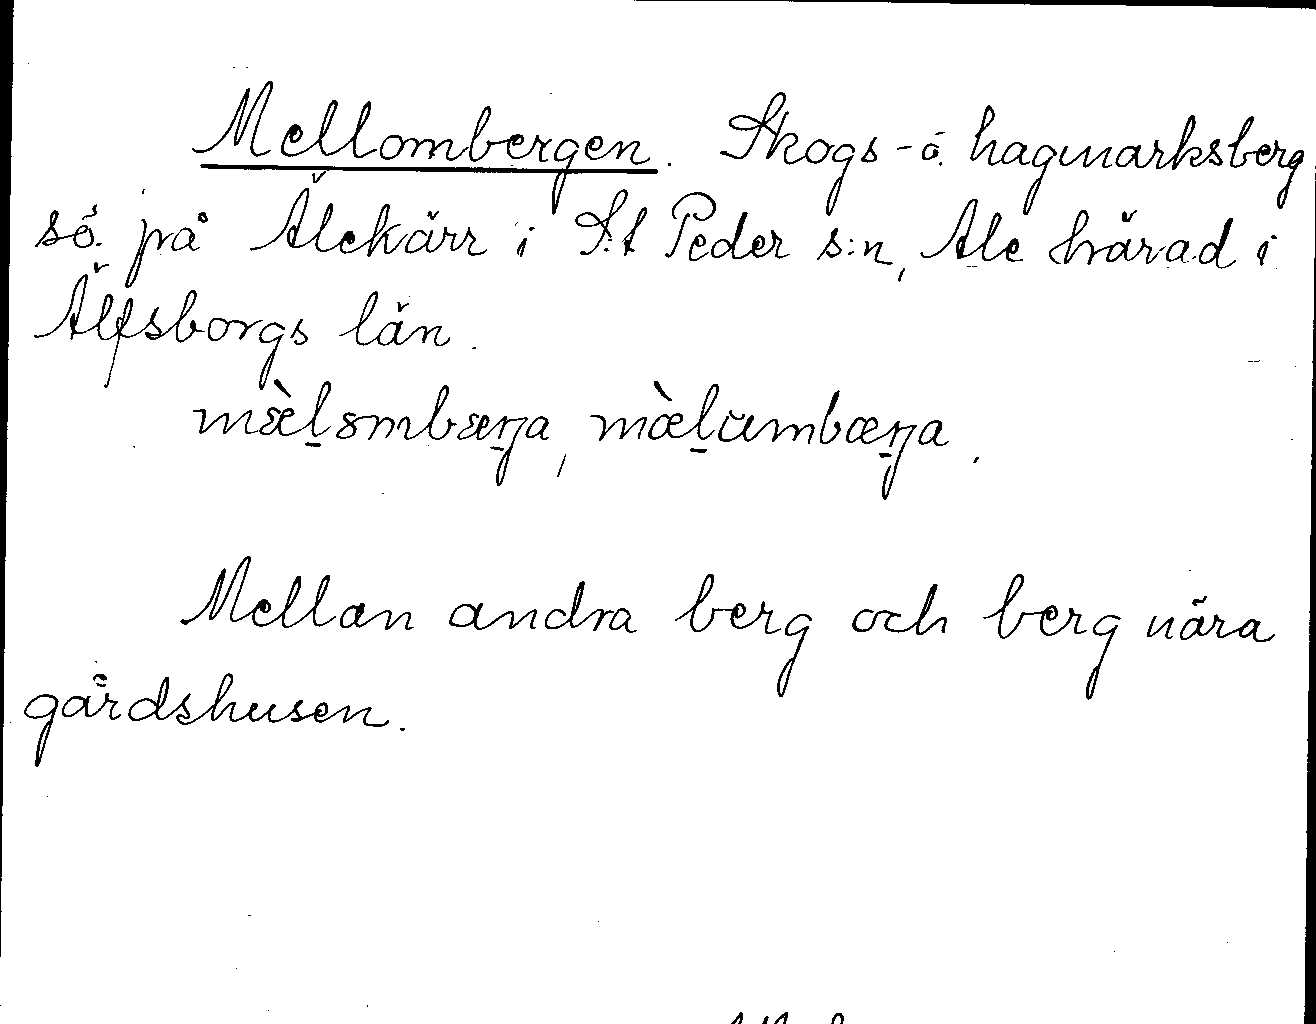 Mellombergen. Skogs- o. hagmarksberg
sö. på Älekärr i S:t Peder s:n, Ale härad i
Älfsborgs län.
mæ̀l̠ɔmbæŋ̠a, mæ̀l̠ŭmbæŋ̠a.
Mellan andra berg och berg nära
gårdshusen.